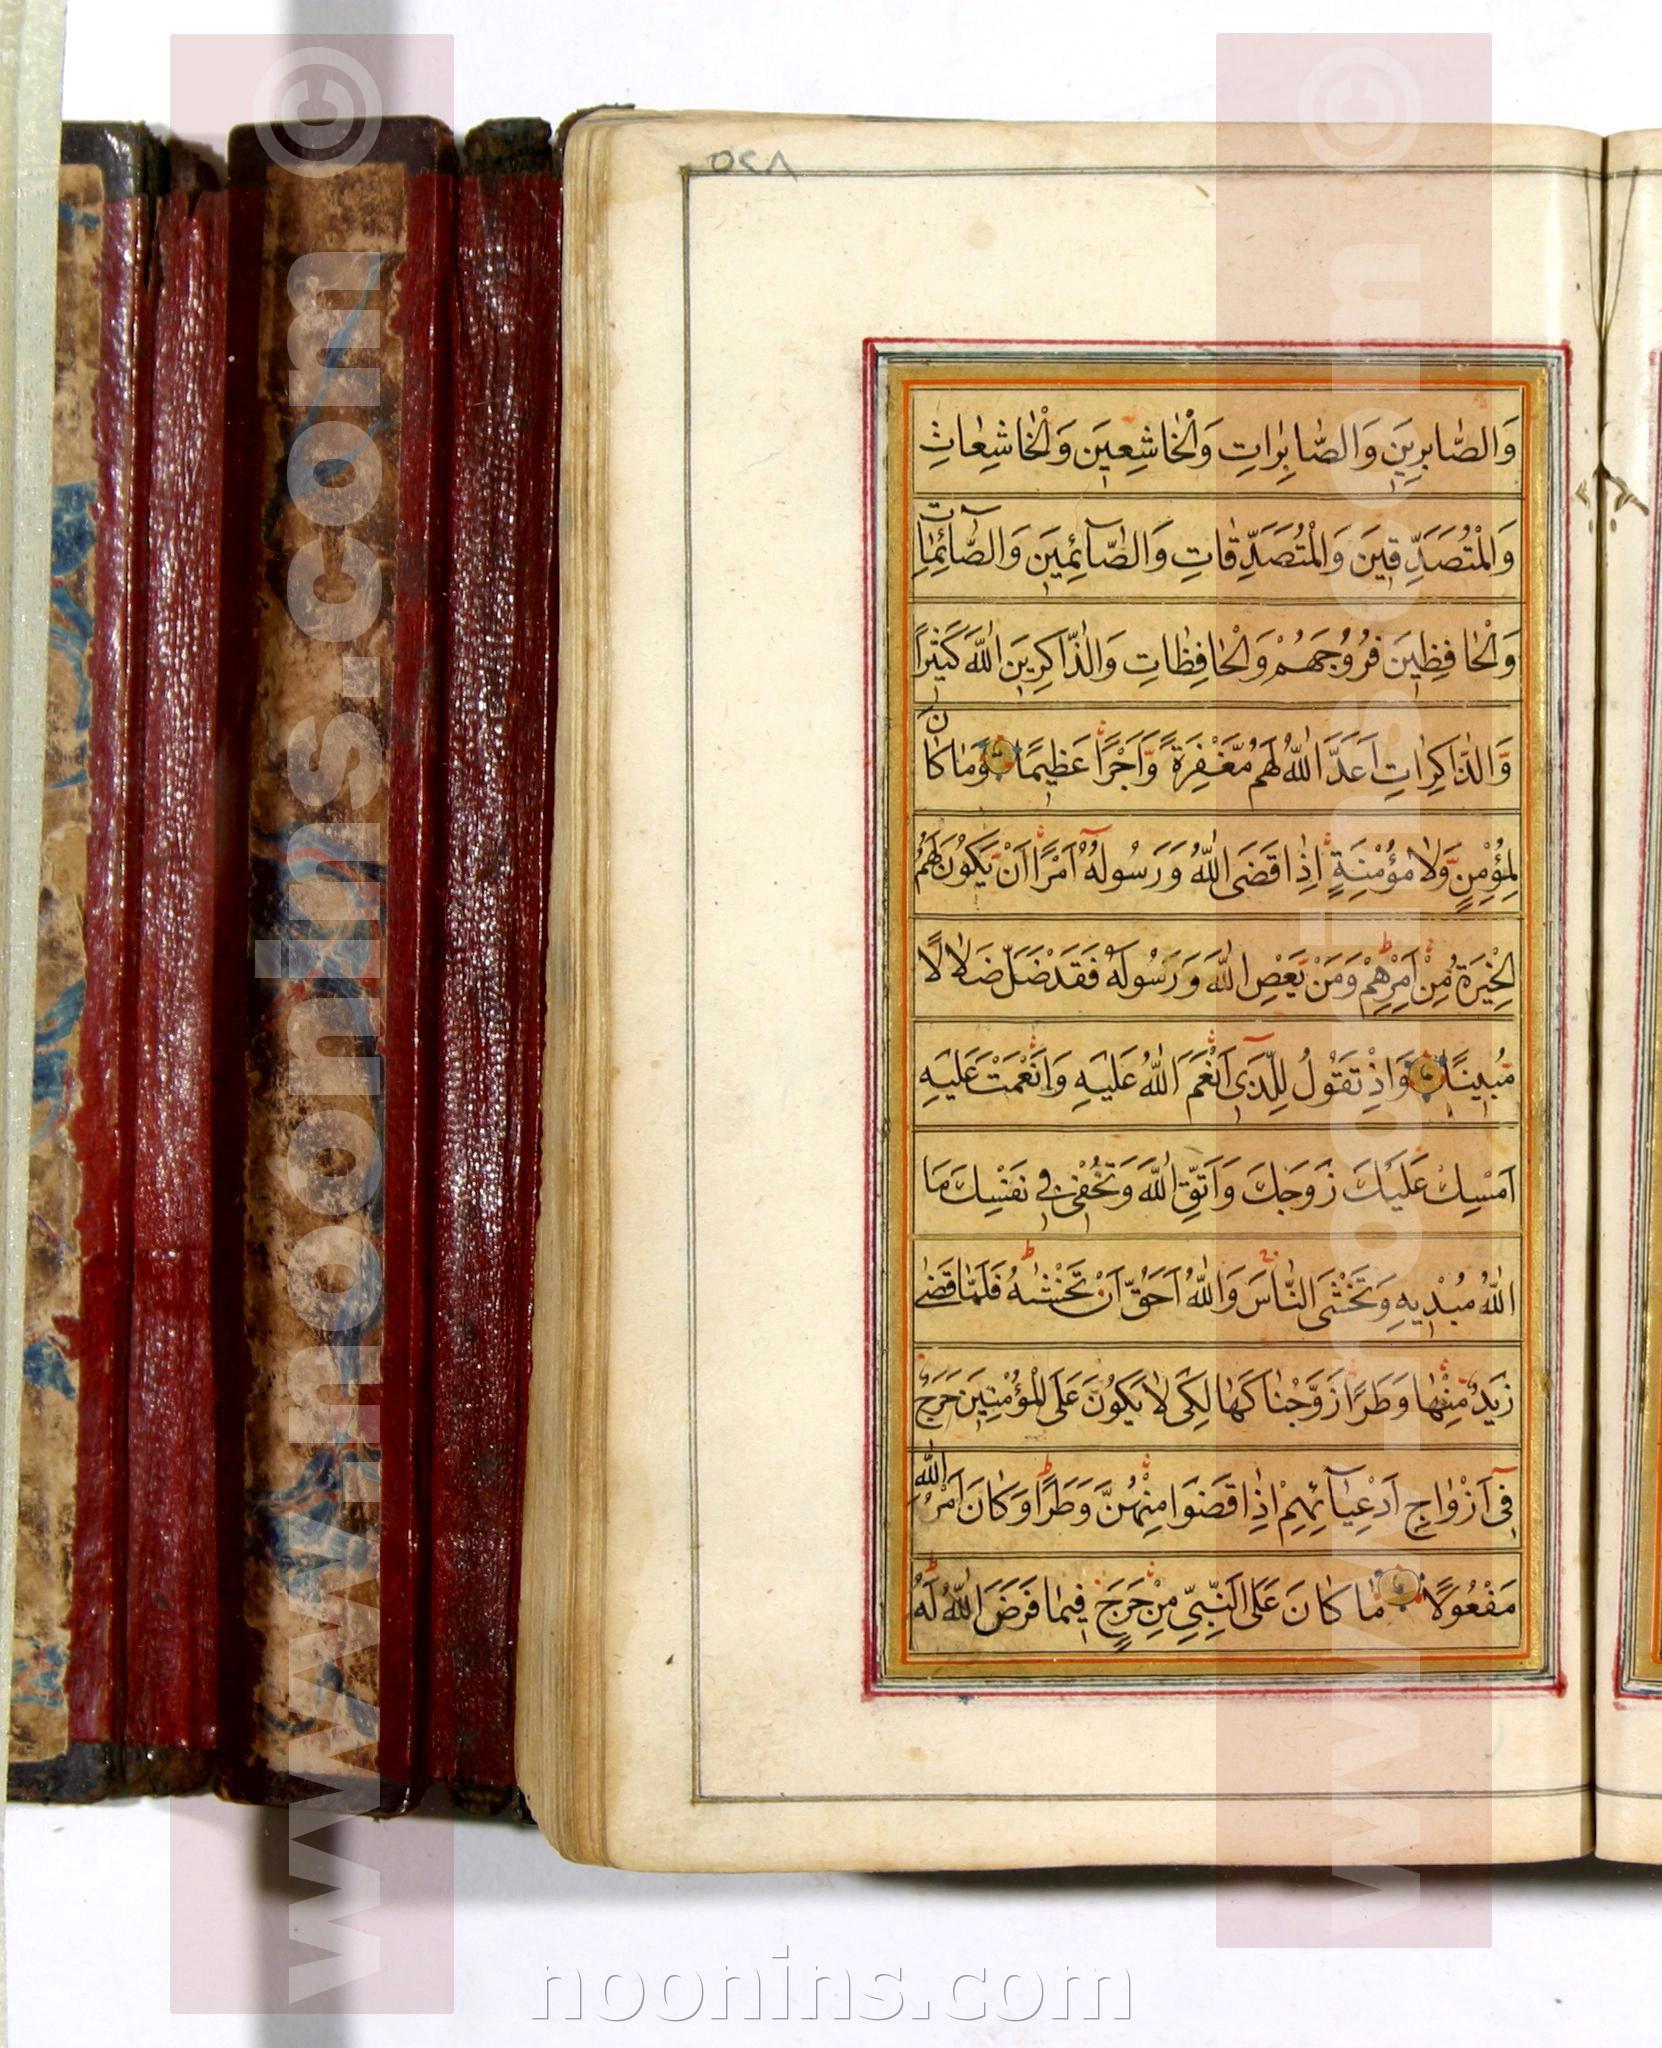 ٥٢٨
وَالصَّابِرِينَ وَالصَّابِرَاتِ وَالْخَاشِعِينَ وَالْخَاشِعَاتِ
وَالْمُتَصَدِّقِينَ وَالْمُتَصَدِّقَاتِ وَالصَّآئِمِينَ وَالصَّآئِمَاتِ
وَالْحَافِظِينَ فُرُوجَهُمْ وَالْحَافِظَاتِ وَالذَّاكِرِينَ اللّٰهَ كَثِيرًا
وَالذَّاكِرَاتِ اَعَدَّ اللّٰهُ لَهُم مَّغْفِرَةً وَّاَجْرًا عَظِيمًا وَّمَا كَانَ
لِمُؤْمِنٍ وَّلَا مُؤْمِنَةٍ اِذَا قَضَى اللّٰهُ وَرَسُولُهُ اَمْرًا اَنْ يَّكُونَ لَهُمُ
الْخِيَرَةُ مِنْ اَمْرِهِمْ وَمَنْ يَّعْصِ اللّٰهَ وَرَسُولَهُ فَقَدْ ضَلَّ ضَلَالًا
مُّبِينًا وَاِذْ تَقُولُ لِلَّذِي اَنْعَمَ اللّٰهُ عَلَيْهِ وَاَنْعَمْتَ عَلَيْهِ
اَمْسِكْ عَلَيْكَ زَوْجَكَ وَاتَّقِ اللّٰهَ وَتُخْفِي فِي نَفْسِكَ مَا
اللّٰهُ مُبْدِيهِ وَتَخْشَى النَّاسَ وَاللّٰهُ اَحَقُّ اَنْ تَخْشٰهُ فَلَمَّا قَضٰى
زَيْدٌ مِّنْهَا وَطَرًا زَوَّجْنَاكَهَا لِكَيْ لَا يَكُونَ عَلَى الْمُؤْمِنِينَ حَرَجٌ
فِي اَزْوَاجِ اَدْعِيَآئِهِمْ اِذَا قَضَوْا مِنْهُنَّ وَطَرًا وَكَانَ اَمْرُ اللّٰهِ
مَفْعُولًا مَا كَانَ عَلَى النَّبِيِّ مِنْ حَرَجٍ فِيمَا فَرَضَ اللّٰهُ لَهُ
www.noonins.com ©
www.noonins.com ©
noonins.com